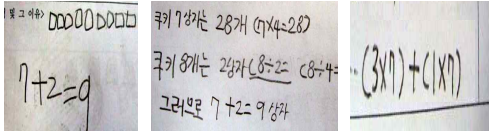 및 그 이유>
7+2=9
쿠키 7상자는 28개 (7×4=28)
쿠키 8개는 2상자 (8÷2= (8÷4=
그러므로 7+2=9 상자
(3×7)+(1×7)